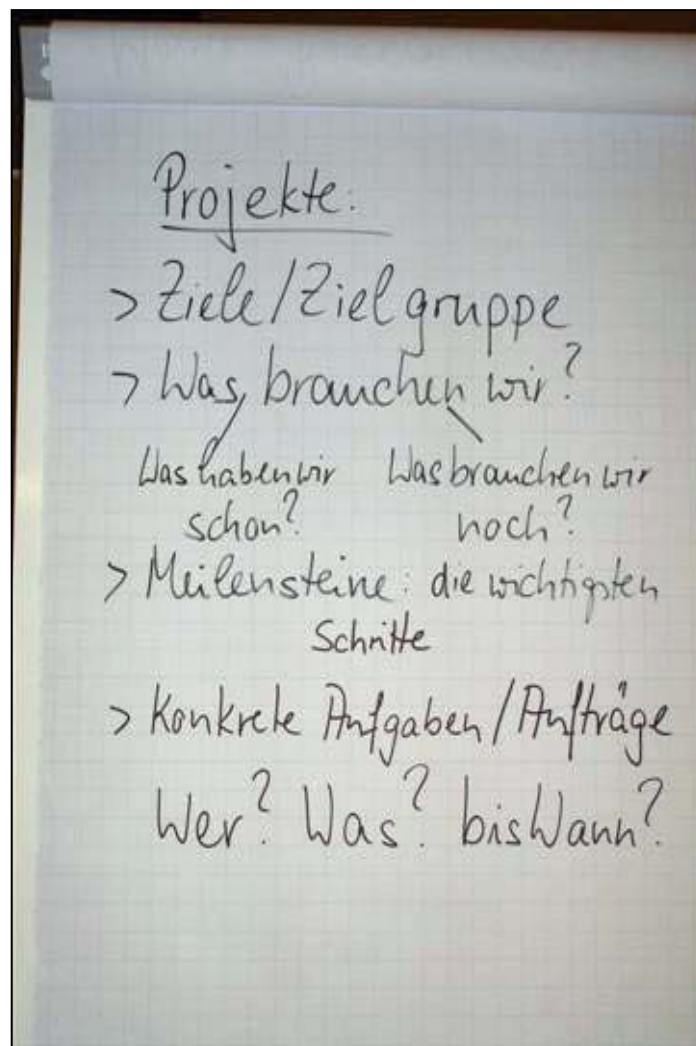 Projekte:
> Ziele/Zielgruppe
> Was brauchen wir?
Was haben wir Was brauchen wir
schon? noch?
> Meilensteine: die wichtigsten
Schritte
> Konkrete Aufgaben/Aufträge
Wer? Was? bis Wann?